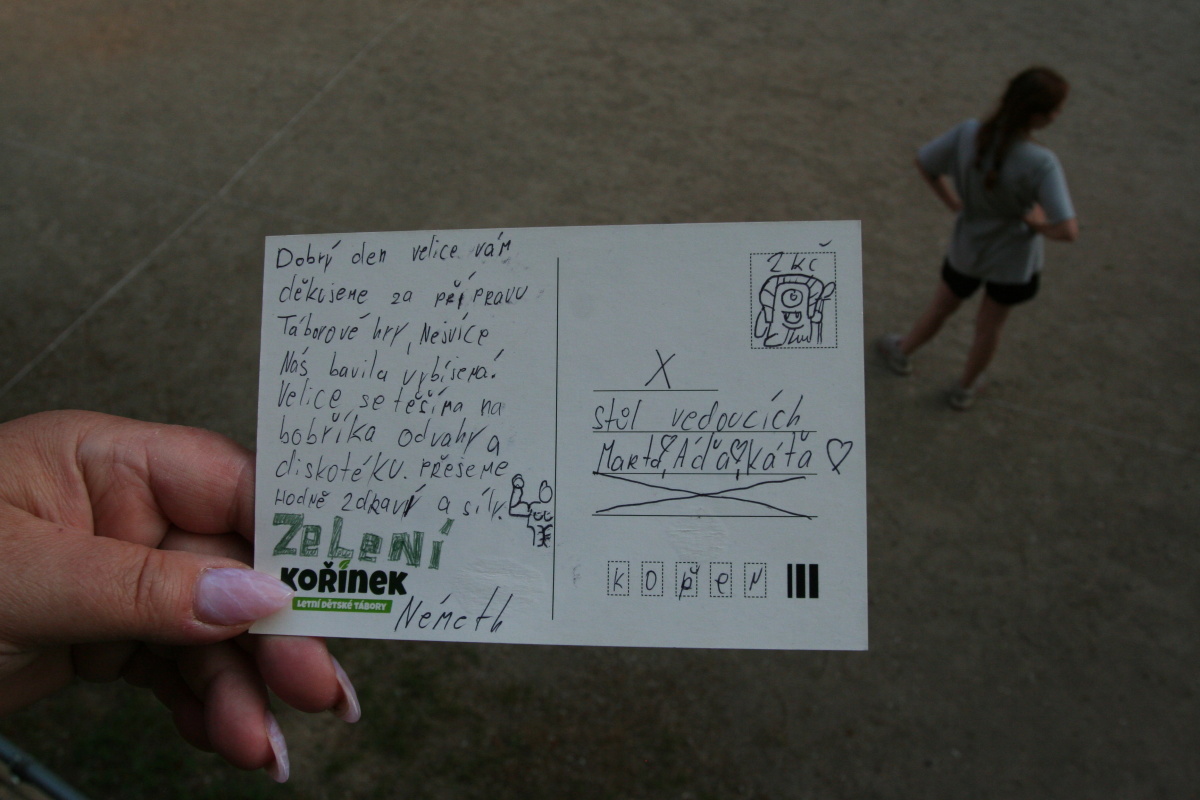 Dobrý den velice vám
děkujeme za přípravu
Táborové hry, Nejvíce
Nás bavila vybíjená.
Velice se těšíma na
bobříka odvahy a
diskotéku. Přejeme
Hodně zdraví a síly.
ZeLeNí
KOŘÍNEK
LETNÍ DĚTSKÉ TÁBORY
Németh
2 Kč
X
stůl vedoucích
Marťa, Áďa, Káťa
K O P E